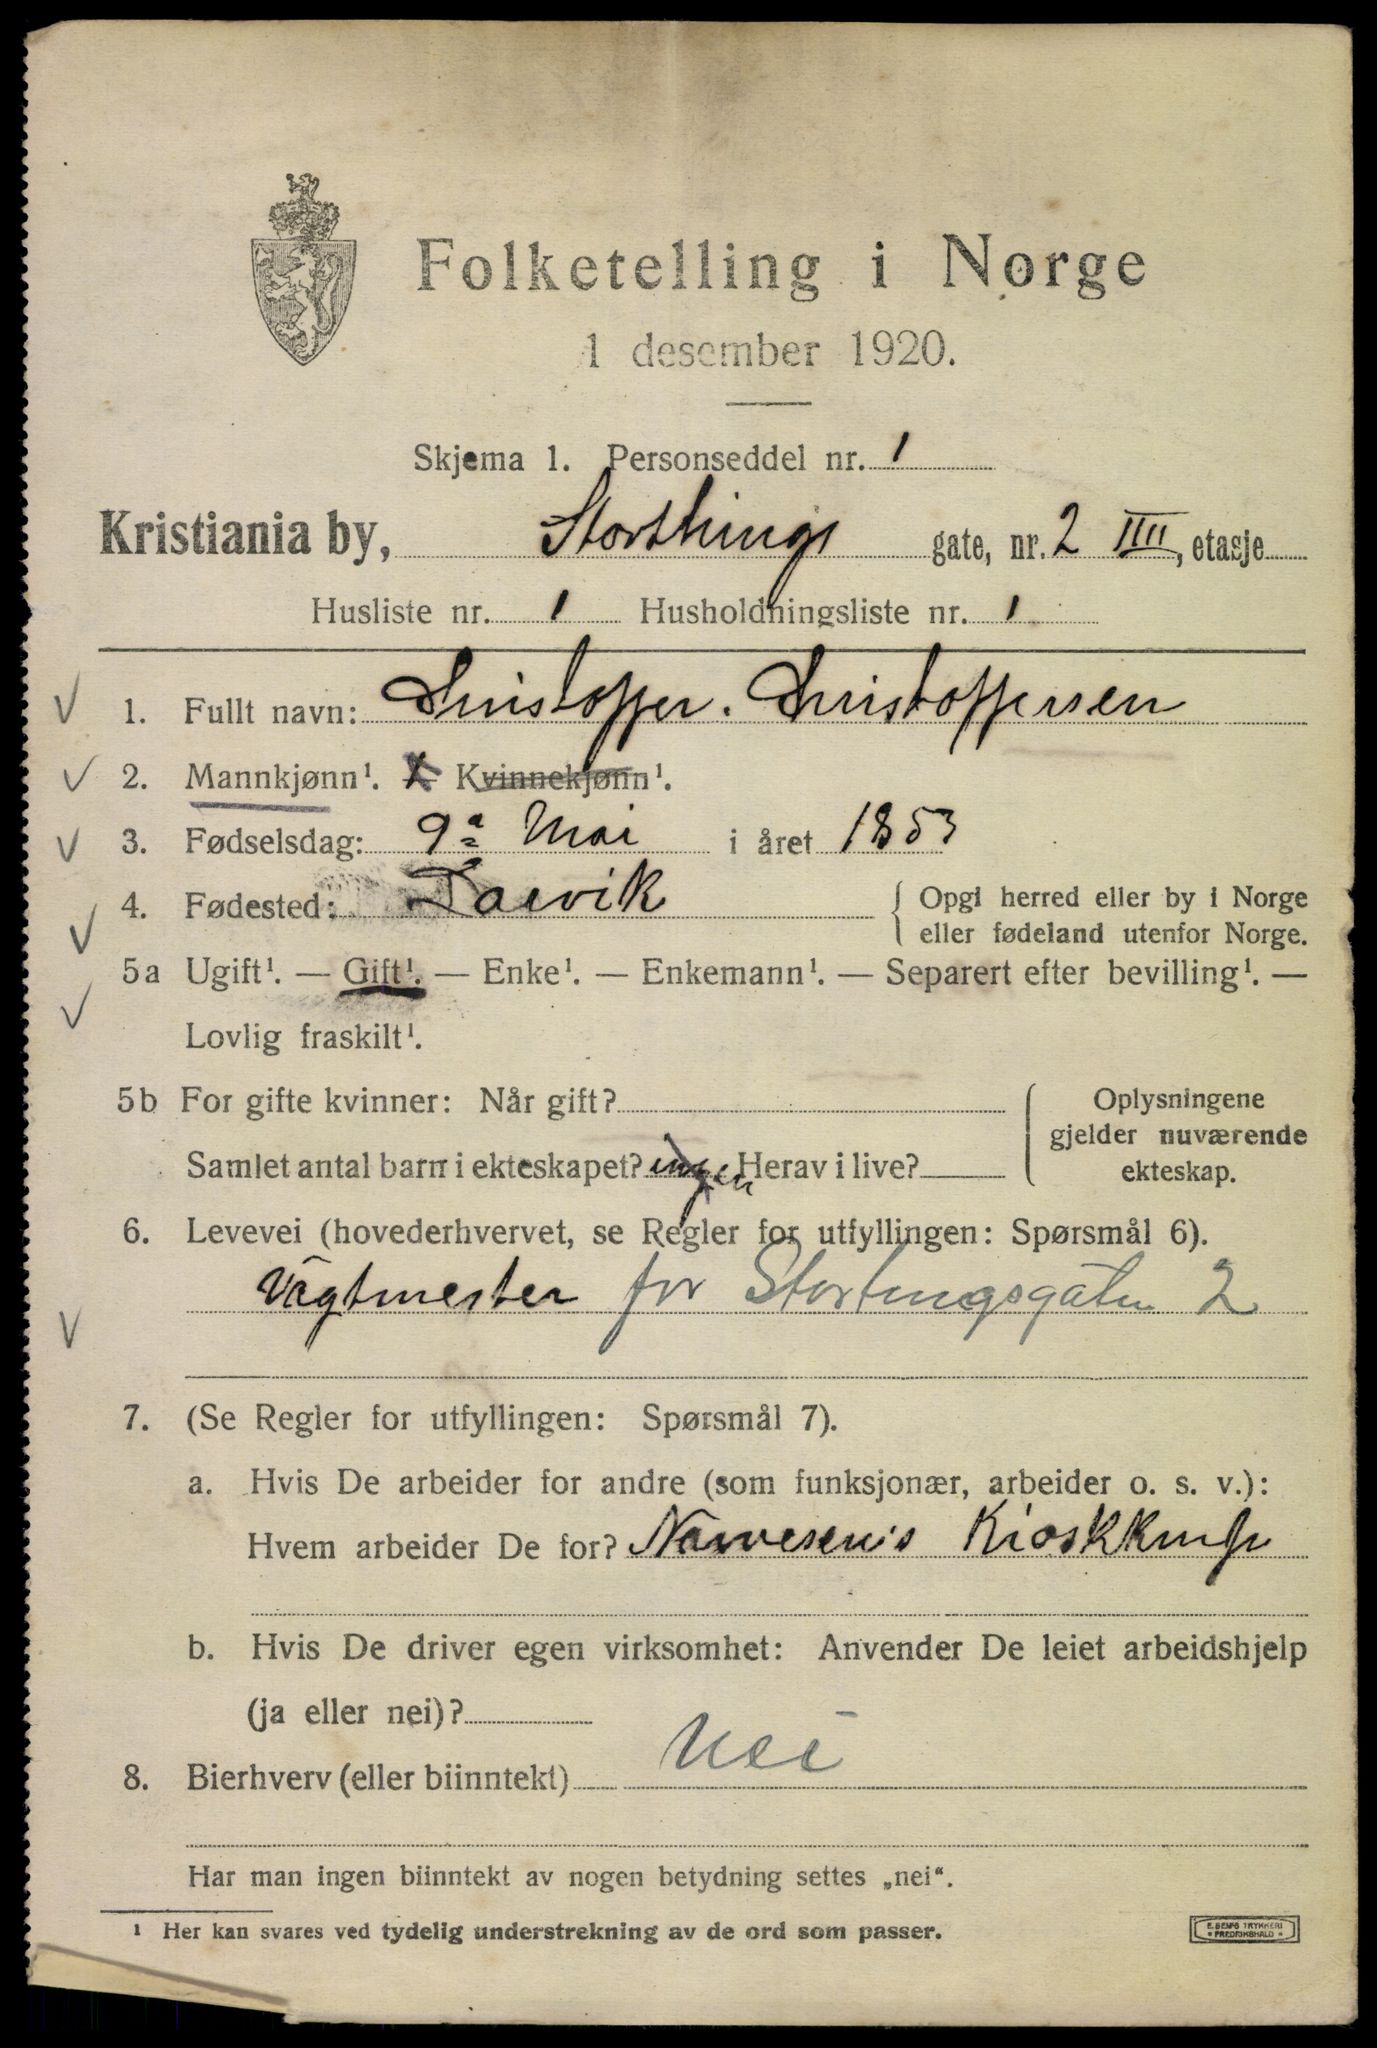 Folketelling i Norge
1 desember 1920.
Skjema 1. Personseddel nr. 1
Kristiania by, Storthings gate, nr. 2 IIII, etasje
Husliste nr. 1 Husholdningsliste nr. 1
1. Fullt navn: Christoffer. Christoffersen
2. Mannkjønn¹. X Kvinnekjønn¹.
3. Fødselsdag: 9ᵈᵉ Mai i året 1853
4. Fødested: Larvik { Opgi herred eller by i Norge
eller fødeland utenfor Norge.
5a Ugift¹. — Gift¹. — Enke¹. — Enkemann¹. — Separert efter bevilling¹. —
Lovlig fraskilt¹.
5b For gifte kvinner: Når gift? { Oplysningene
gjelder nuværende
Samlet antal barn i ekteskapet? ingen Herav i live? ekteskap.
6. Levevei (hovederhvervet, se Regler for utfyllingen: Spørsmål 6).
Vagtmester for Stortingsgaten 2
7. (Se Regler for utfyllingen: Spørsmål 7).
a. Hvis De arbeider for andre (som funksjonær, arbeider o. s. v.):
Hvem arbeider De for? Narvesen's
b. Hvis De driver egen virksomhet: Anvender De leiet arbeidshjelp
(ja eller nei)?
8. Bierhverv (eller biinntekt) Nei
Har man ingen biinntekt av nogen betydning settes „nei“.
¹ Her kan svares ved tydelig understrekning av de ord som passer.
E. SEMS TRYKKERI
* FREDRIKSHALD *